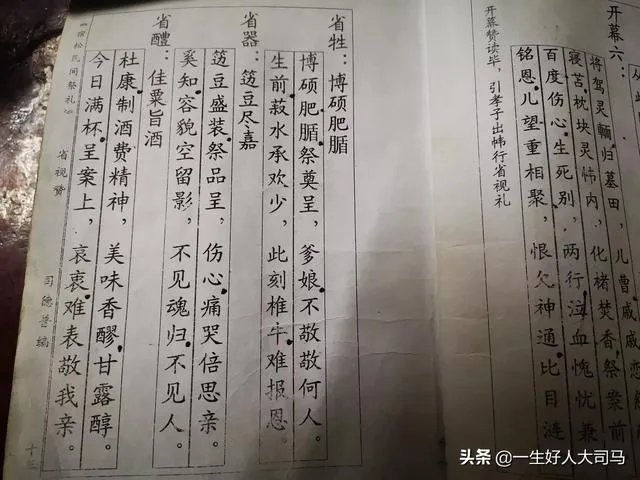 开幕六：
将驾灵輀归墓田，儿曹戚戚恋
寝苫枕块灵帏内，化楮焚香祭案前
百度伤心生死别，两行泪血愧忧兼
铭恩儿望重相聚，恨欠神通比目涟
开幕赞读毕，引孝子出帏行省视礼
省牲：博硕肥腯
博硕肥腯祭奠呈，爹娘不敬敬何人。
生前菽水承欢少，此刻椎牛难报恩。
省器：笾豆尽嘉
笾豆盛装祭品呈，伤心痛哭倍思亲。
奚知容貌空留影，不见魂归不见人。
省醴：佳粟旨酒
杜康制酒费精神，美味香醪甘露醇。
今日满杯呈案上，哀衷难表敬我亲。
《宿松民间祭礼》 省视赞 司德 编 十三
头条 @一生好人大司马